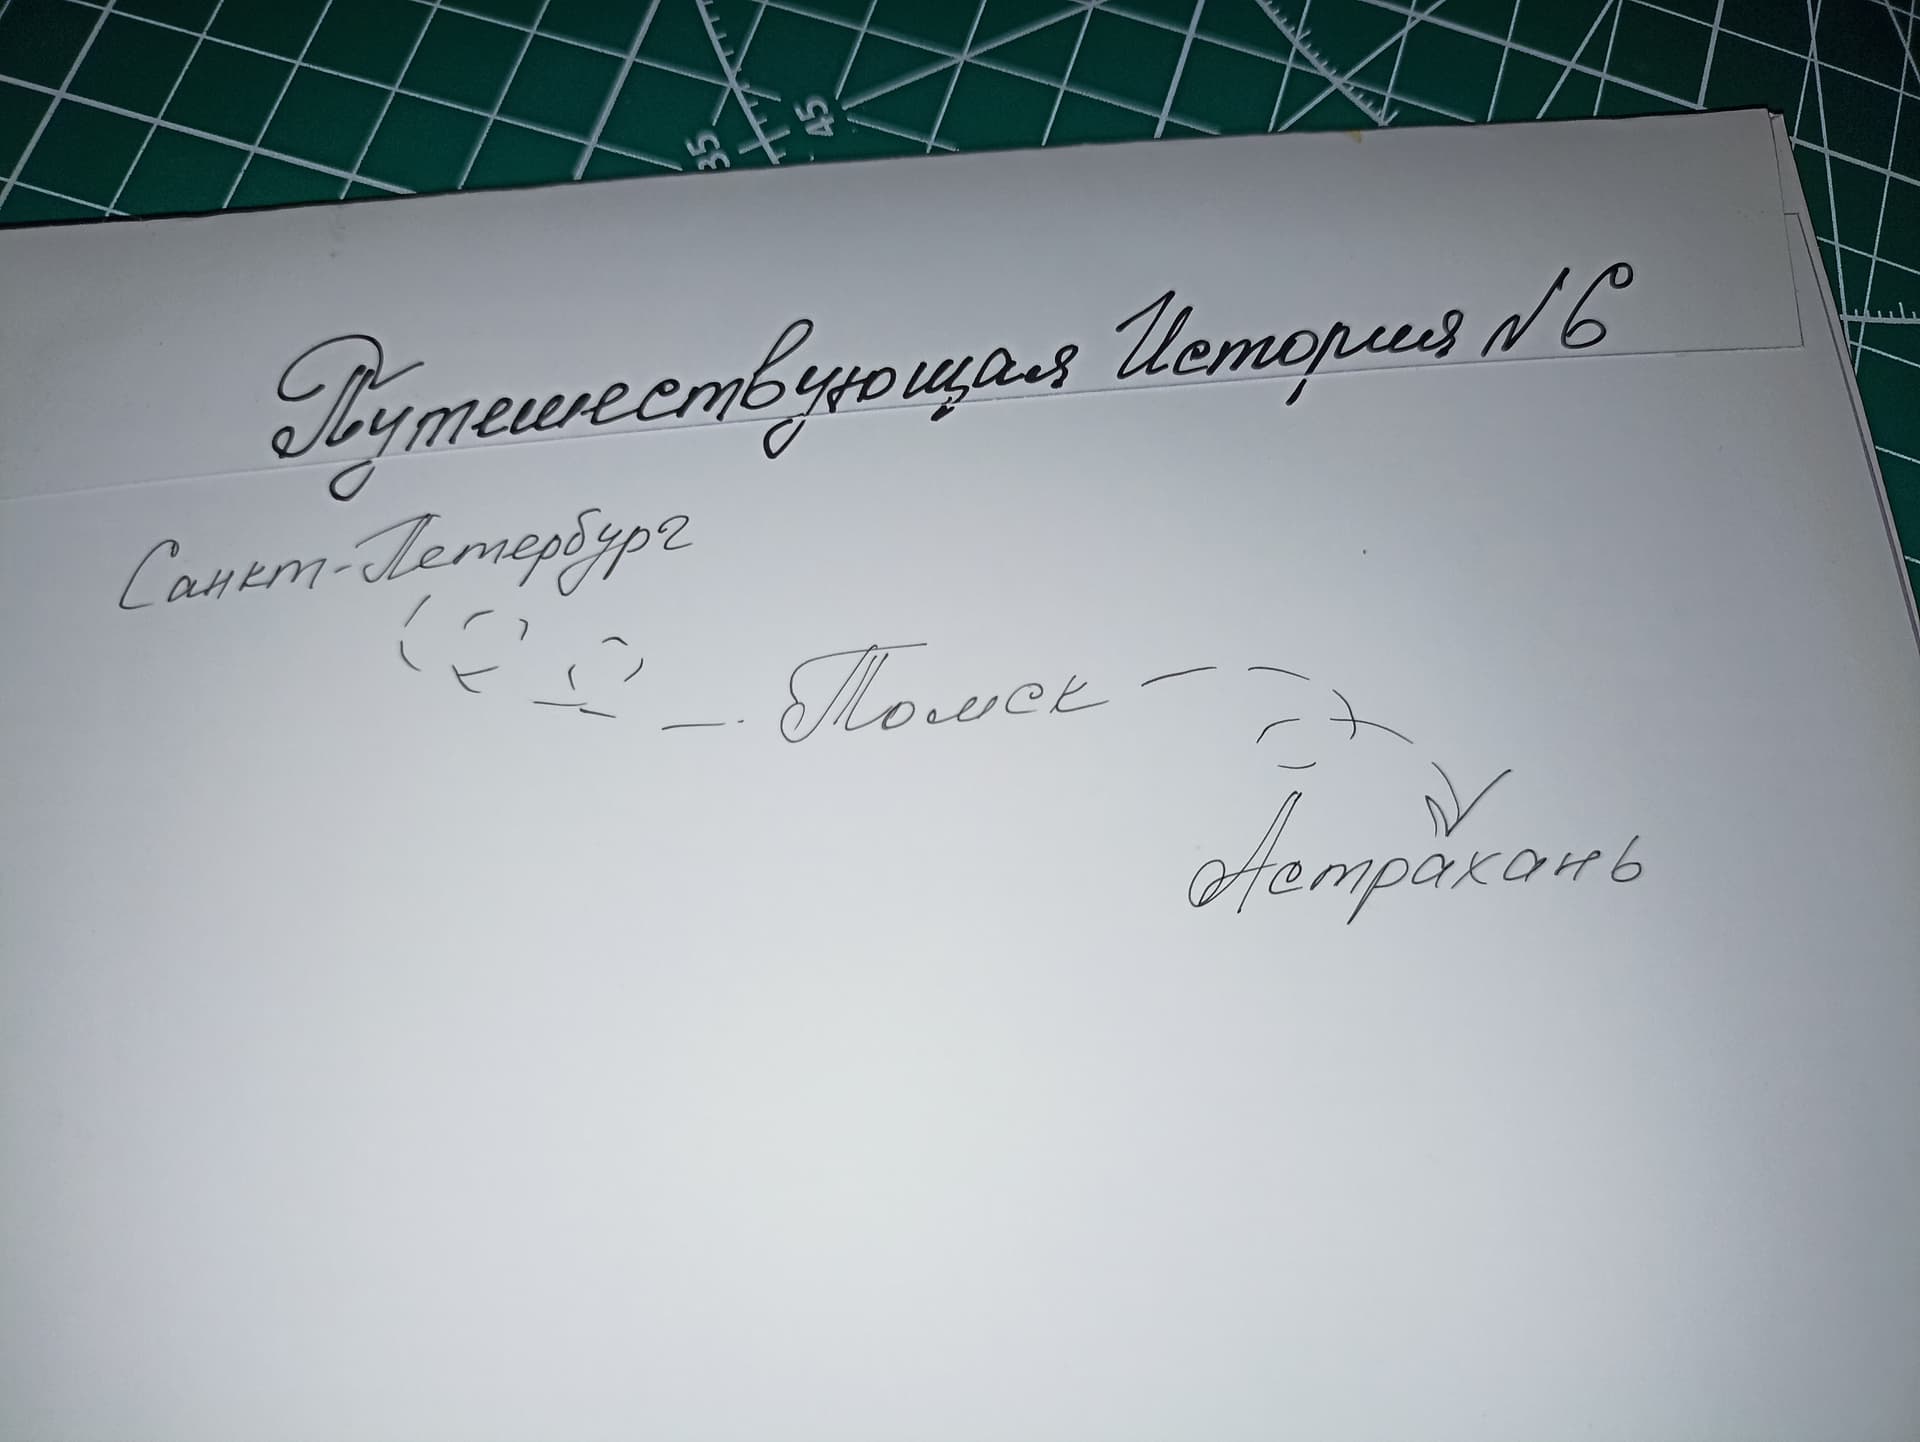 35
45
Путешествующая История N6
Санкт-Петербург
Томск
Астрахань